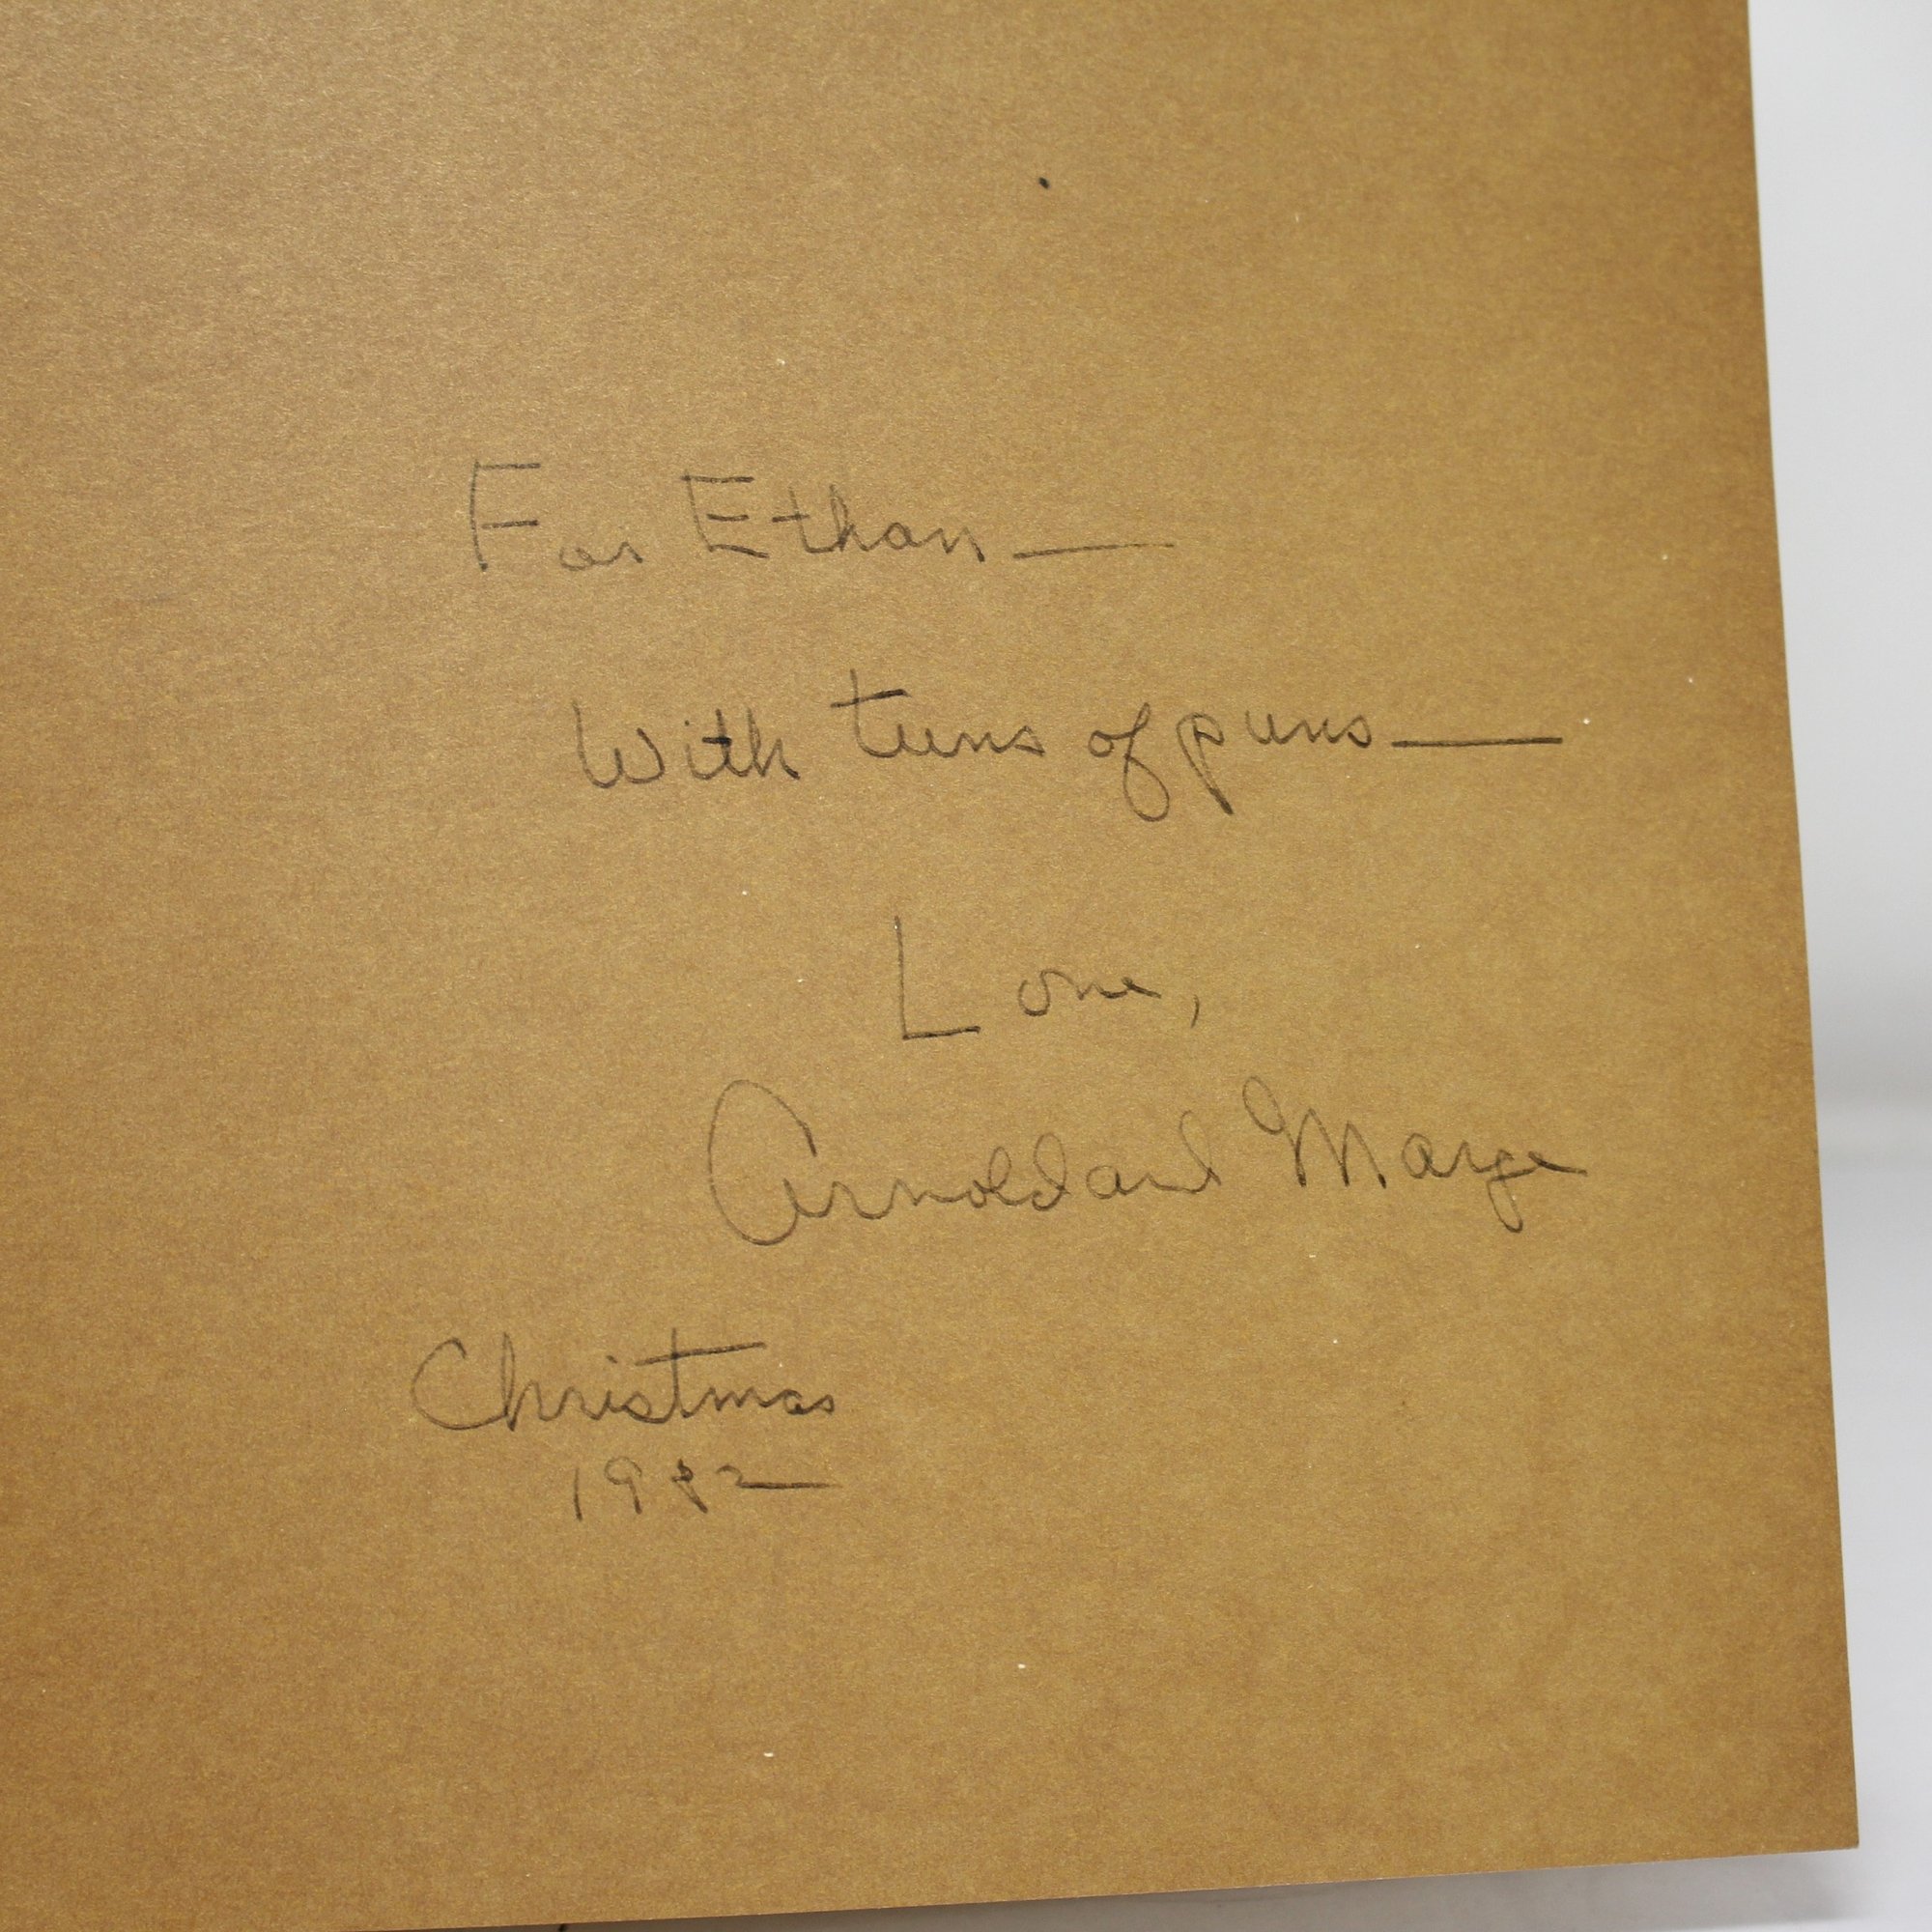 For Ethan —
With tuns of puns —
Love,
Arnold and Marge
Christmas
1982